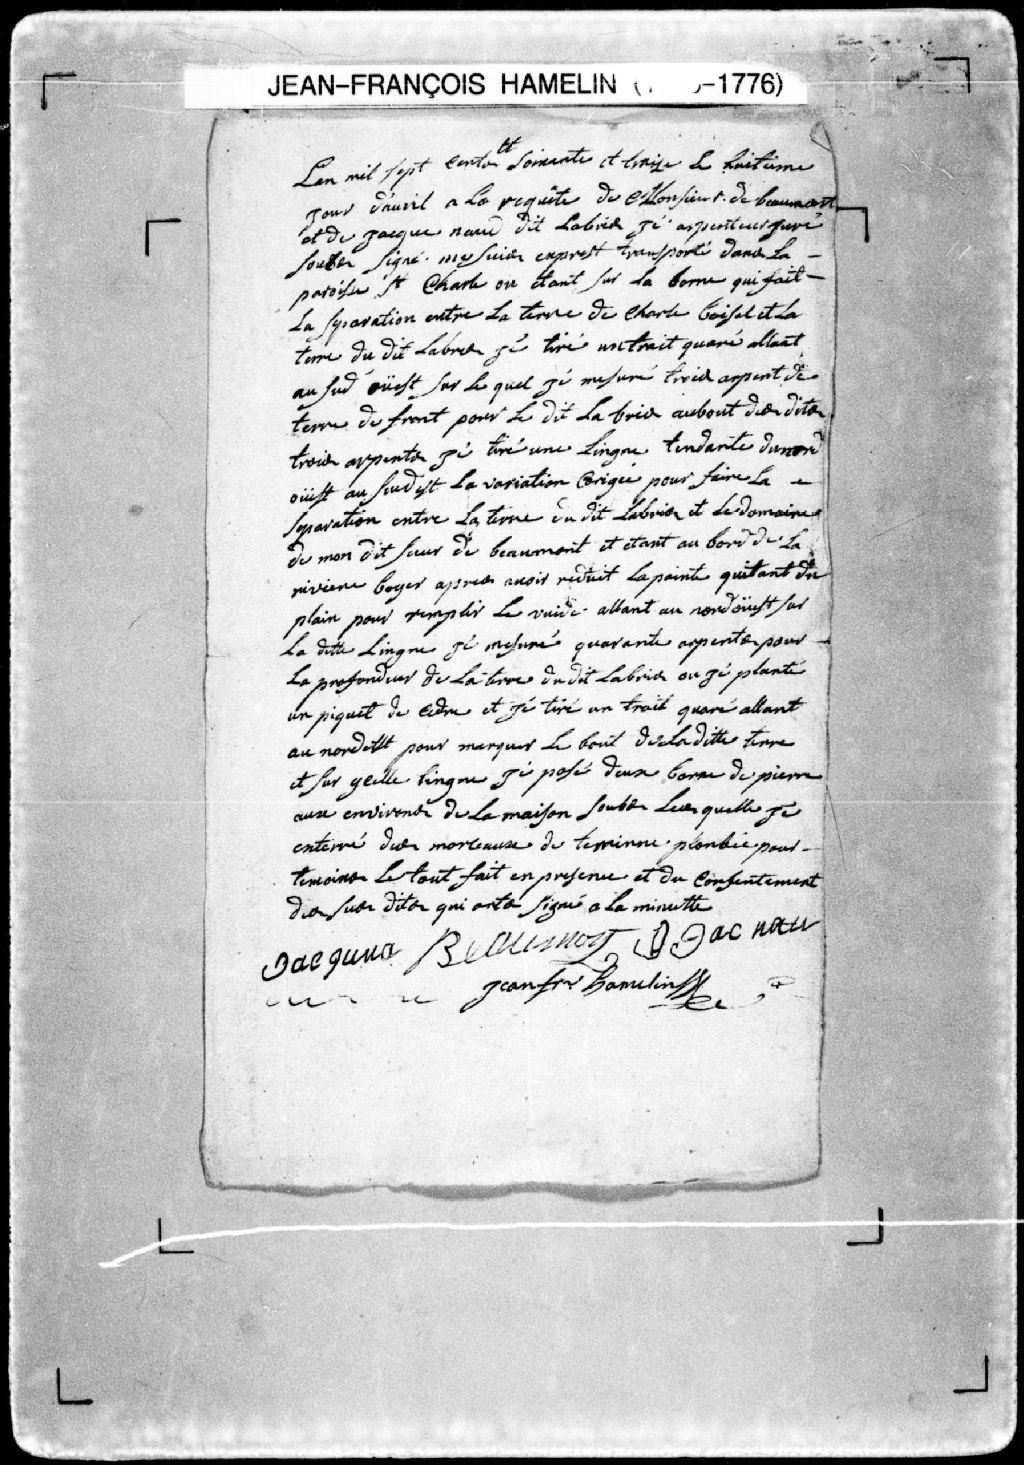 JEAN-FRANÇOIS HAMELIN ( -1776)
Len mil sept cents soixante et treize le huitieme
jour d'avril a la requête de Monsieur de beaumont
et de jacque naud dit Labrie jé arpenteur juré
soubs signé me suis exprest transporté dans La
paroisse st Charle ou étant sur La borne qui fait
La separation entre La terre de Charle boisel et La
terre du dit Labrie jé tiré un trait quaré allant
au sud oüest sur le quel jé mesuré trois arpent de
terre de front pour Le dit La brie au bout des dits
trois arpents jé tiré une Lingne tendante du nord
oüest au sud est La variation Corigée pour faire La
separation entre La terre du dit Labrie et Le domaine
de mon dit sieur de beaumont et étant au bord de La
riviere boyer apres avoir réduit La pointe quitant du
plain pour remplir Le vuide allant au nord oüest sur
La ditte Lingne jé mesuré quarante arpents pour
La profondeur de La terre du dit Labrie ou jé planté
un piquet de Cedre et jé tiré un trait quaré allant
au nord est pour marquer Le bout de La ditte terre
et sur yCelle Lingne jé posé deux borne de pierre
aux environs de La maison soubs Lesquelle jé
enterré des morceaux de terrinne plombée pour
temoins Le tout fait en presence et du Consentement
des sus dits qui onts signé a La minutte
Jacquue Beaumont Jac nau
jean frs hamelin